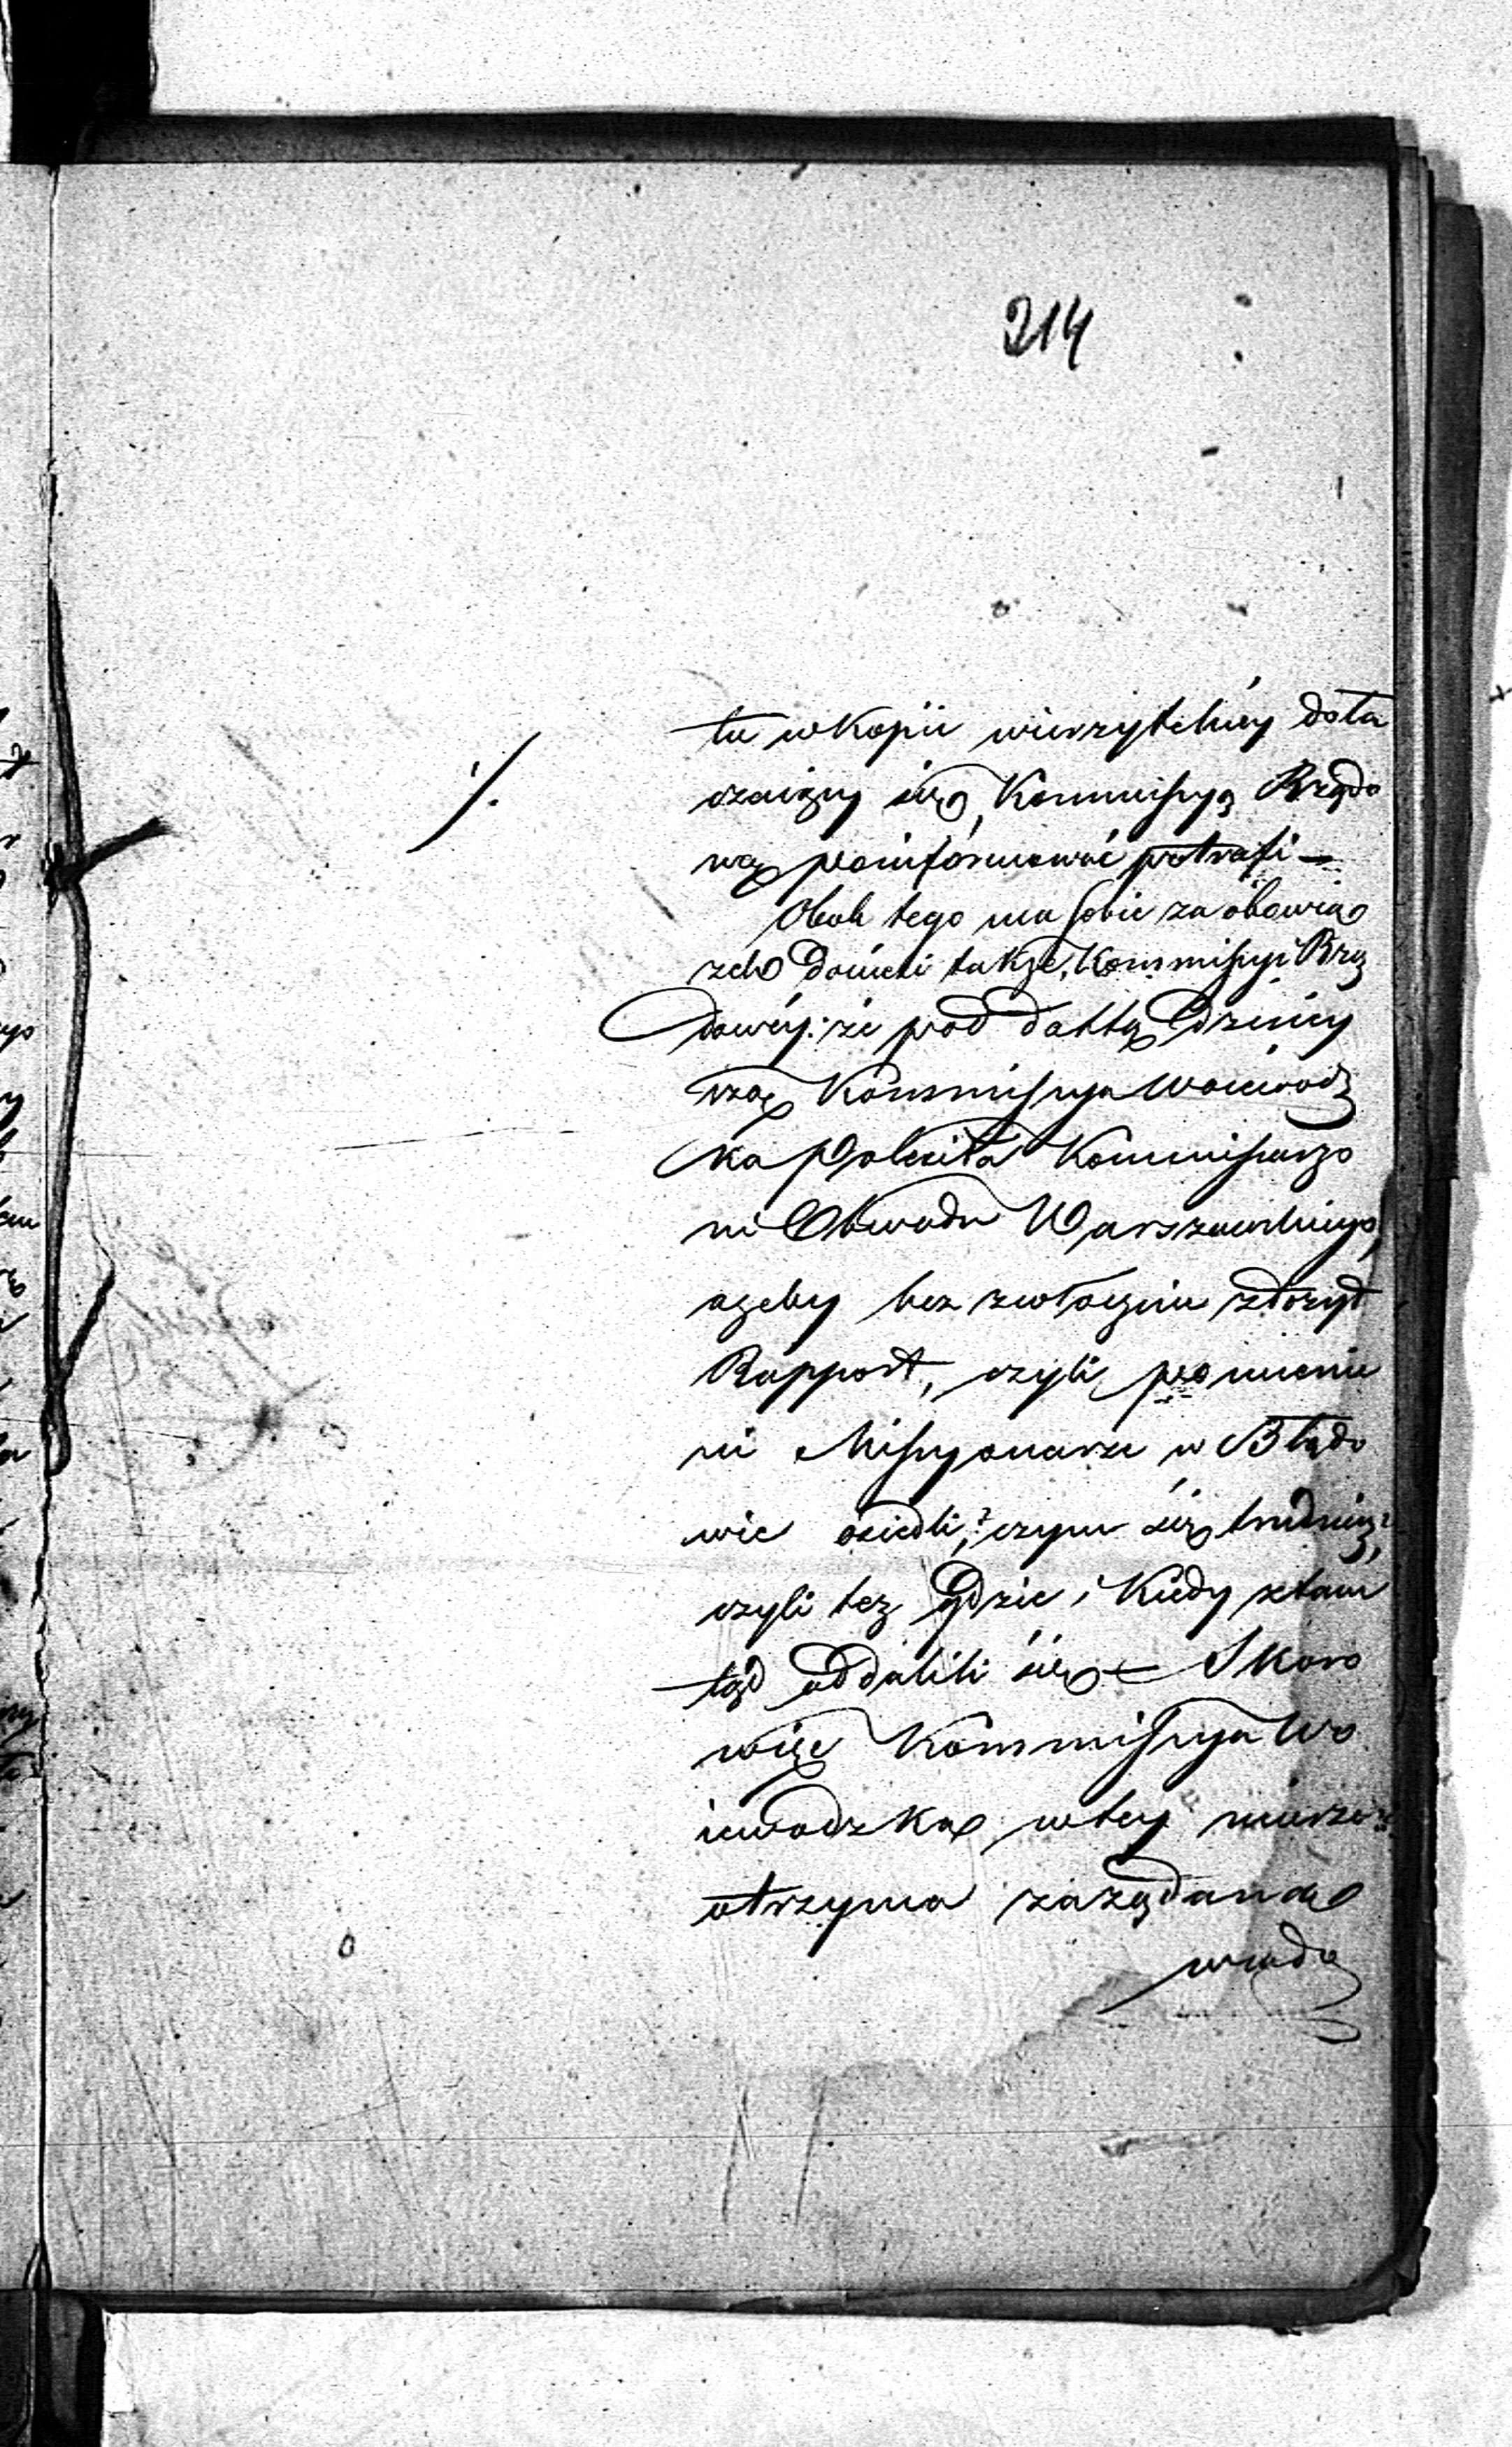 214
./.
tu w kopii wierzytelney dołą
czaiący się, Kommissyą Rządo
wą poinformować potrafi —
Obok tego ma sobie za obowią
zek donieść także, Kommissyi Rzą
dowéy: że pod dattą dzisiey
szą Kommissya Woiewódz
ka Poleciła Kommissarzo
wi Obwodu Warszawskiego,
ażeby bez zwłocznie złożył
Rapport, czyli pomienie
ni Missyonarze w Błędo
wie osiedli, czym się trudnią,
czyli też gdzie i kiedy ztam
tąd oddalili się — Skoro
więc Kommissya Wo
iewódzka w tey mierze
otrzyma zażądaną
wiado